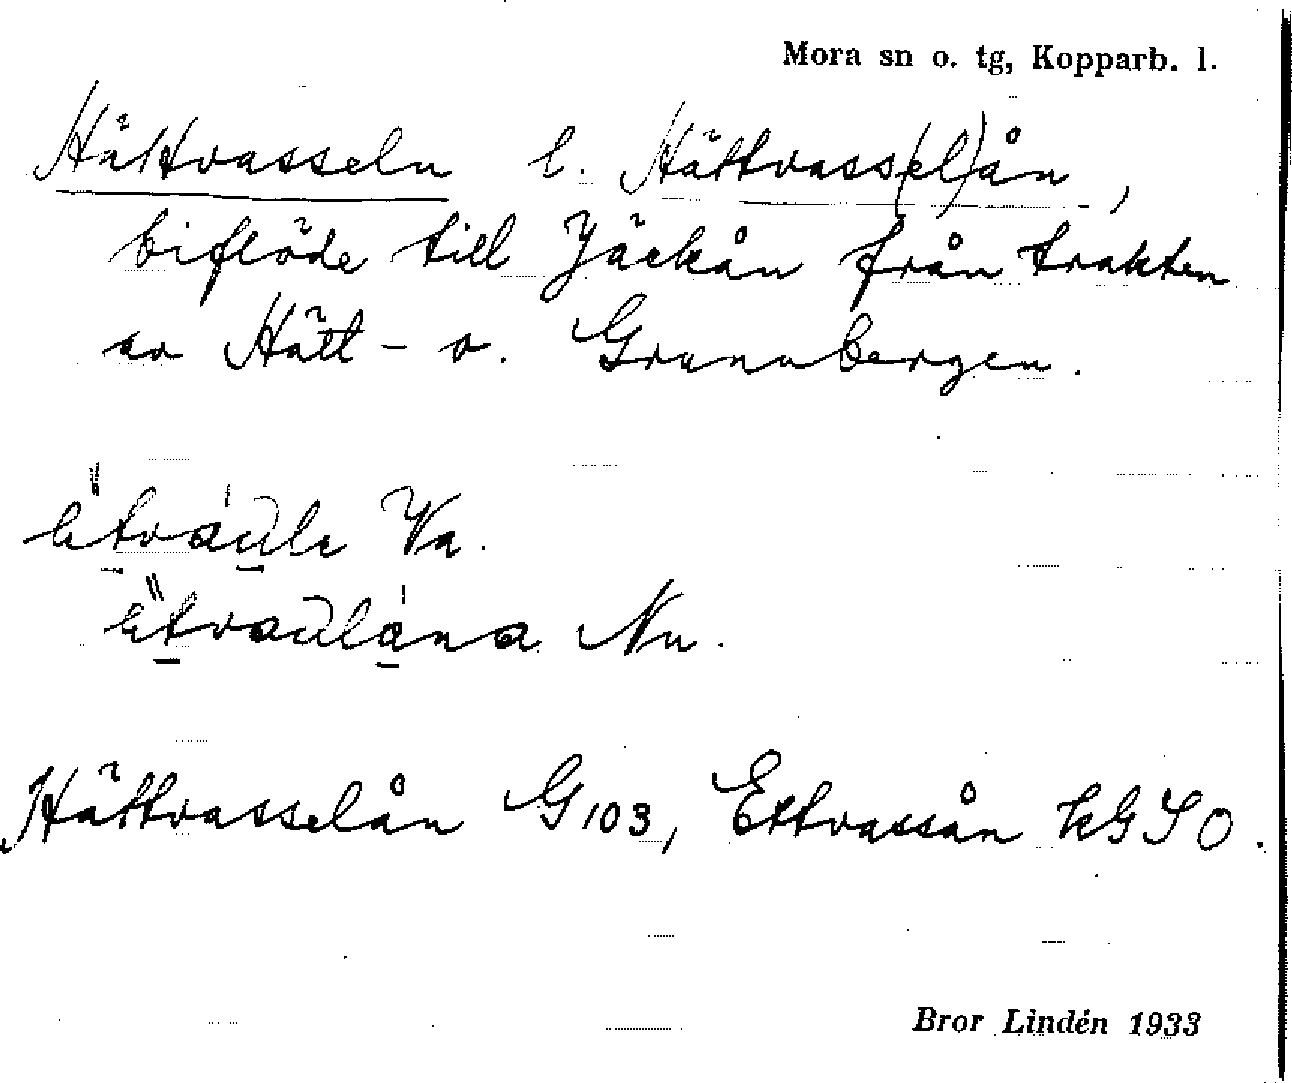 Mora sn o. tg, Kopparb. l.
Hättvasseln l. Hättvass(el)ån,
biflöde till Jäckån från trakten
av Hätt- o. Grannbergen.
Va.
Nu.
Hättvasselån G103, Ettvassån HGSO.
Bror Lindén 1933